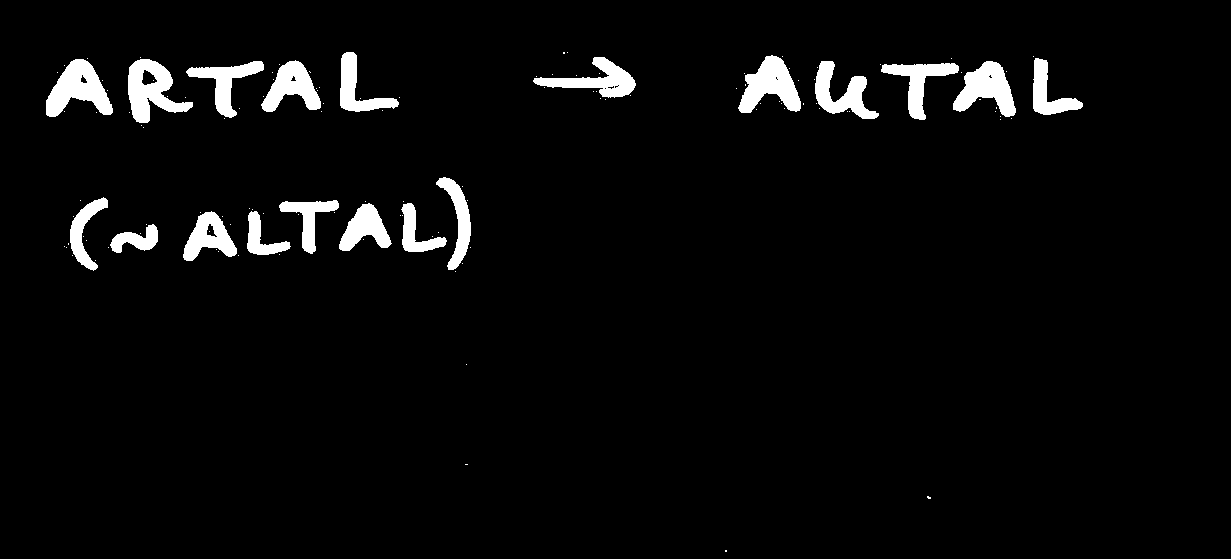 ARTAL → AUTAL
(~ ALTAL)